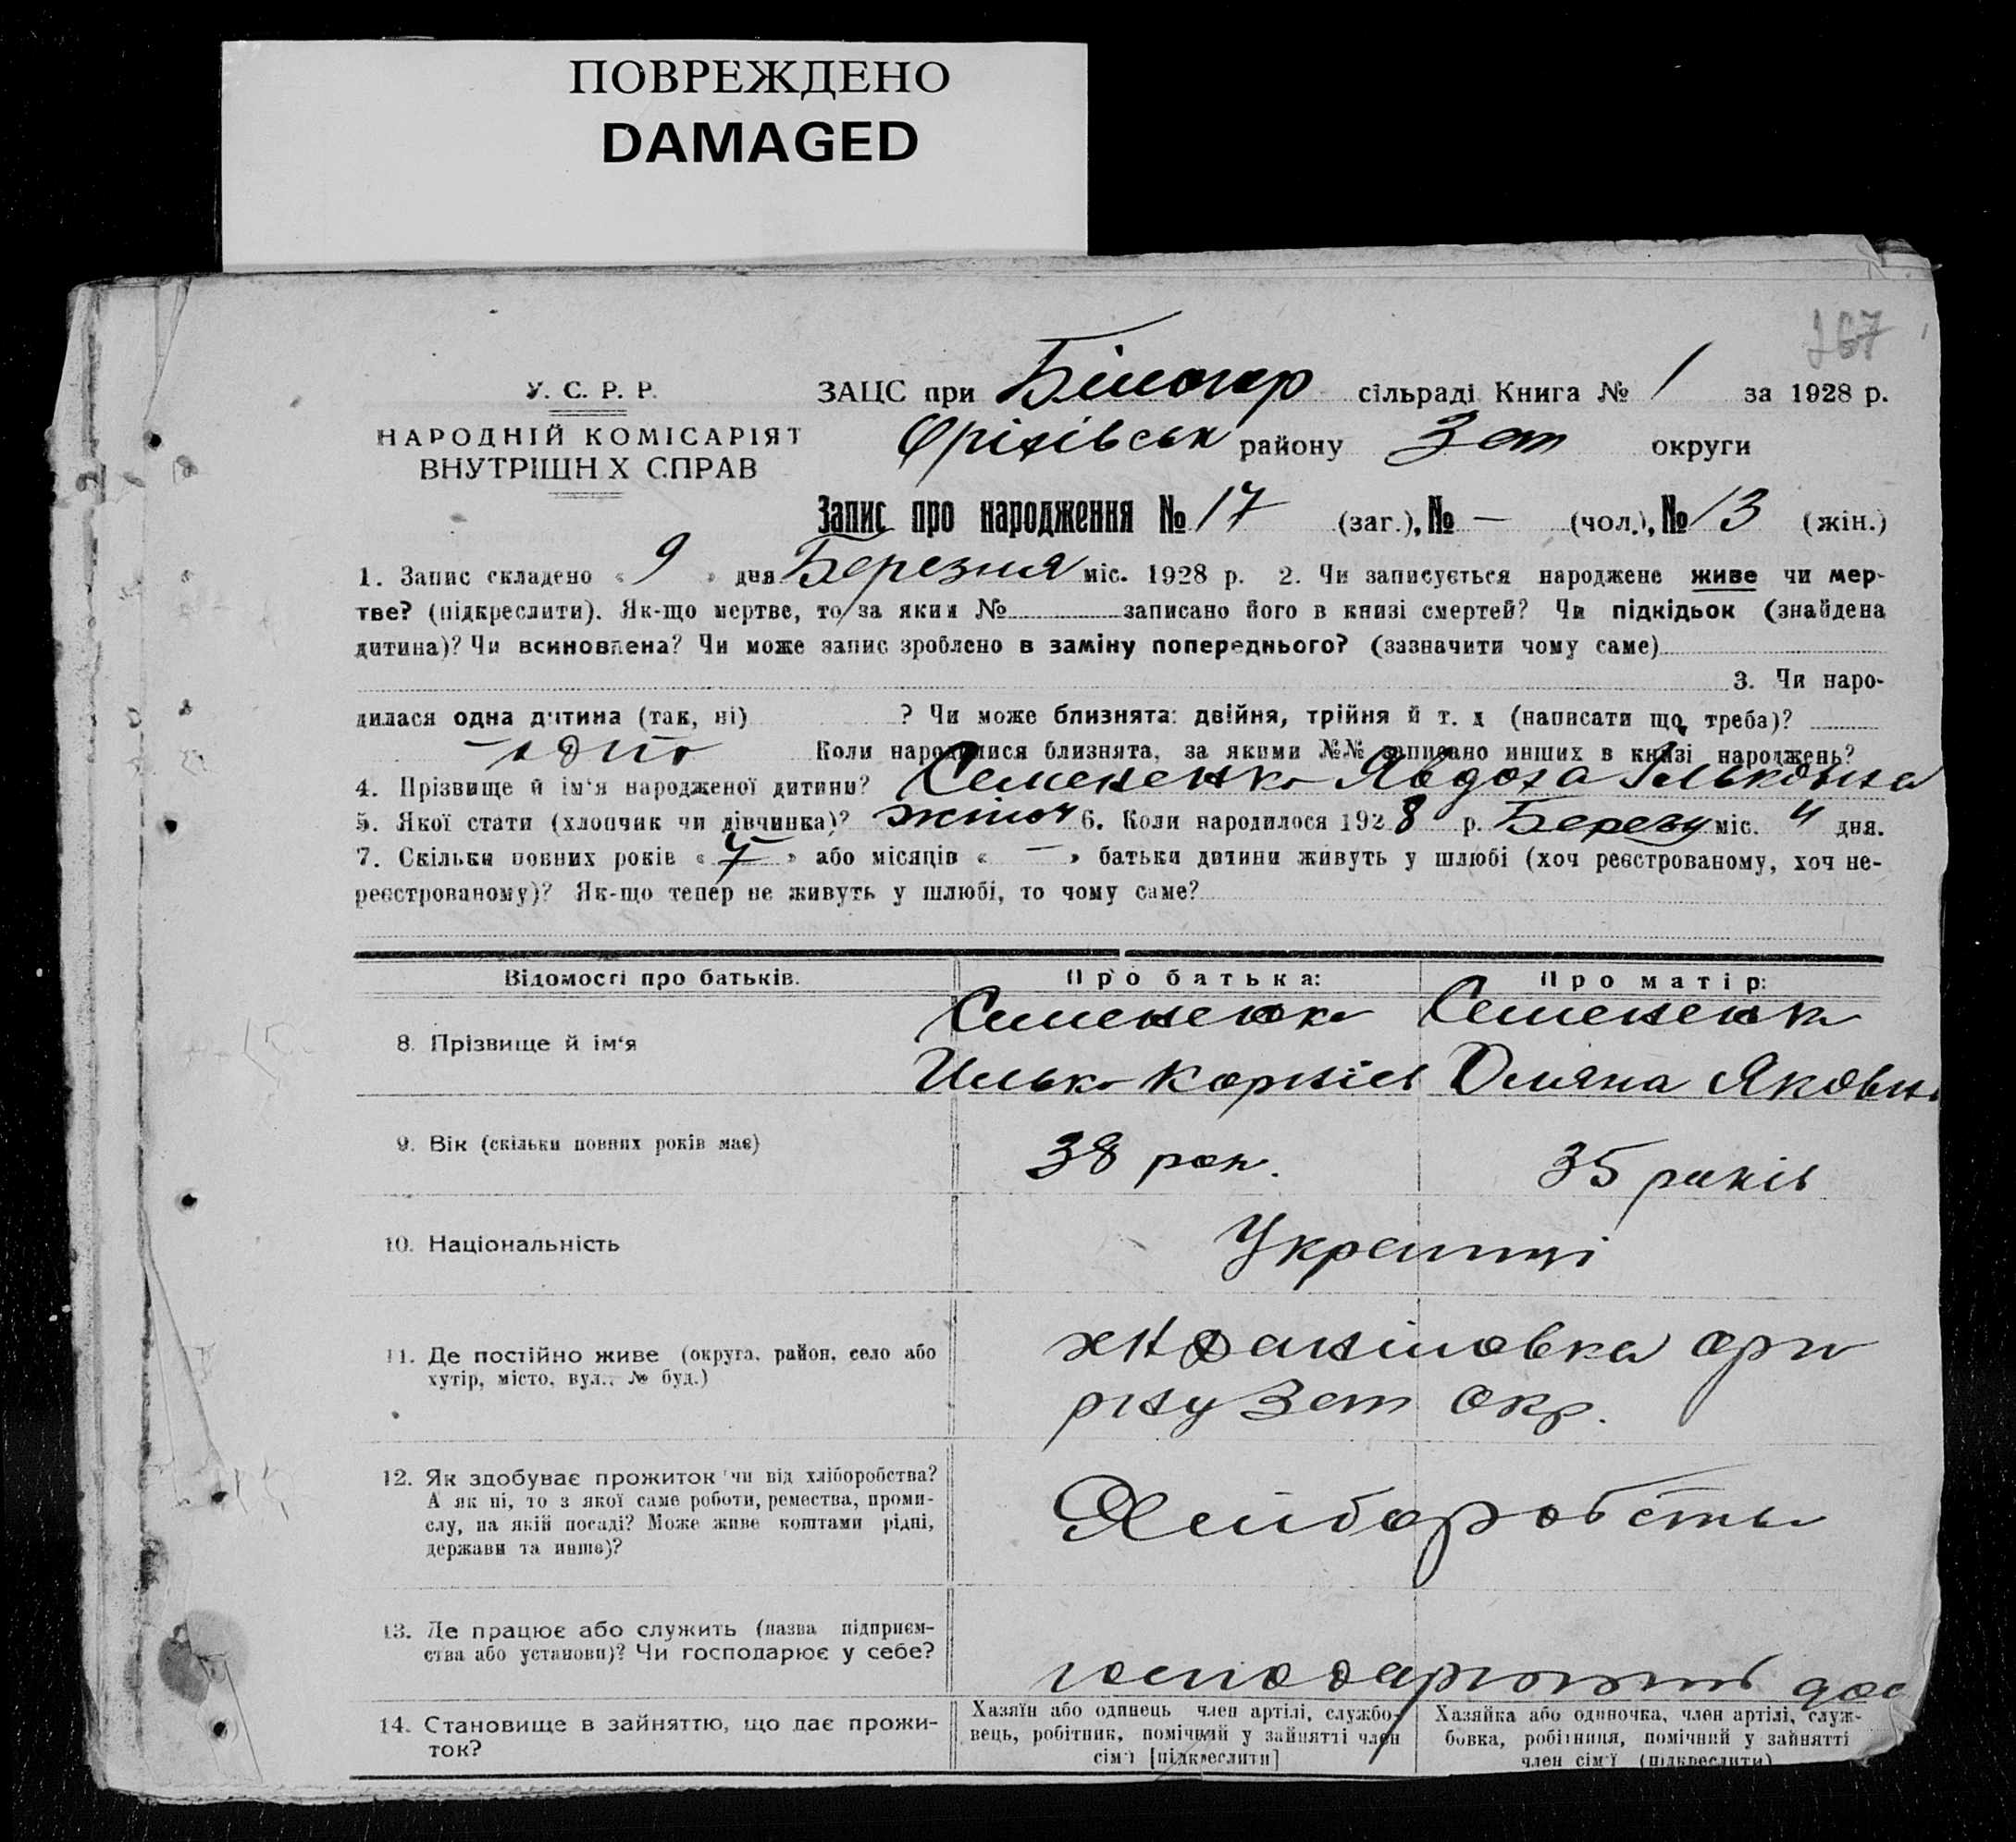 ПОВРЕЖДЕНО
DAMAGED
167
У. С. Р. Р.
НАРОДНІЙ КОМІСАРІЯТ
ВНУТРІШН Х СПРАВ
ЗАЦС при Білогор сільраді Книга № 1 за 1928 р.
Оріхівськ району Зап округи
Запис про народження № 17 (заг.), № — (чол.), № 13 (жін.)
1. Запис складено « 9 » дня Березня міс. 1928 р. 2. Чи записується народжене живе чи мер-
тве? (підкреслити). Як-що мертве, то за яким № записано його в книзі смертей? Чи підкідьок (знайдена
дитина)? Чи всиновлена? Чи може запис зроблено в заміну попереднього? (зазначити чому саме)
3. Чи наро-
дилася одна дитина (так, ні) ? Чи може близнята: двійня, трійня й т. д (написати що треба)?
одно Коли народилися близнята, за якими №№ записано инших в книзі народжень?
4. Прізвище й ім'я народженої дитини? Семененко Явдоха Ільковна
5. Якої стати (хлопчик чи дівчинка)? жіноч 6. Коли народилося 1928 р. Березн міс. 4 дня.
7. Скільки повних років « » або місяців « — » батьки дитини живуть у шлюбі (хоч реєстрованому, хоч не-
реєстрованому)? Як-що тепер не живуть у шлюбі, то чому саме?
Відомості про батьків. Про батька: Про матір:
8. Прізвище й ім'я Семененко Семененко
Илько Корнієв Уляна Яковн
9. Вік (скільки повних років має) 38 рок. 35 років
10. Національність Українці
11. Де постійно живе (округа, район, село або
хутір, місто, вул., № буд.)
рну Зап окр.
12. Як здобуває прожиток чи від хліборобства?
А як ні, то з якої саме роботи, ремества, проми-
слу, на якій посаді? Може живе коштами рідні,
держави та инше)?
Хліборобств
13. Де працює або служить (назва підприєм-
ства або установи)? Чи господарює у себе?
господарюють
14. Становище в зайняттю, що дає прожи-
ток?
Хазяїн або одинець член артілі, службо-
вець, робітник, помічний у зайнятті член
сім'ї [підкреслити]
Хазяйка або одиночка, член артілі, служ-
бовка, робітниця, помічний у зайнятті
член сім'ї (підкреслити)